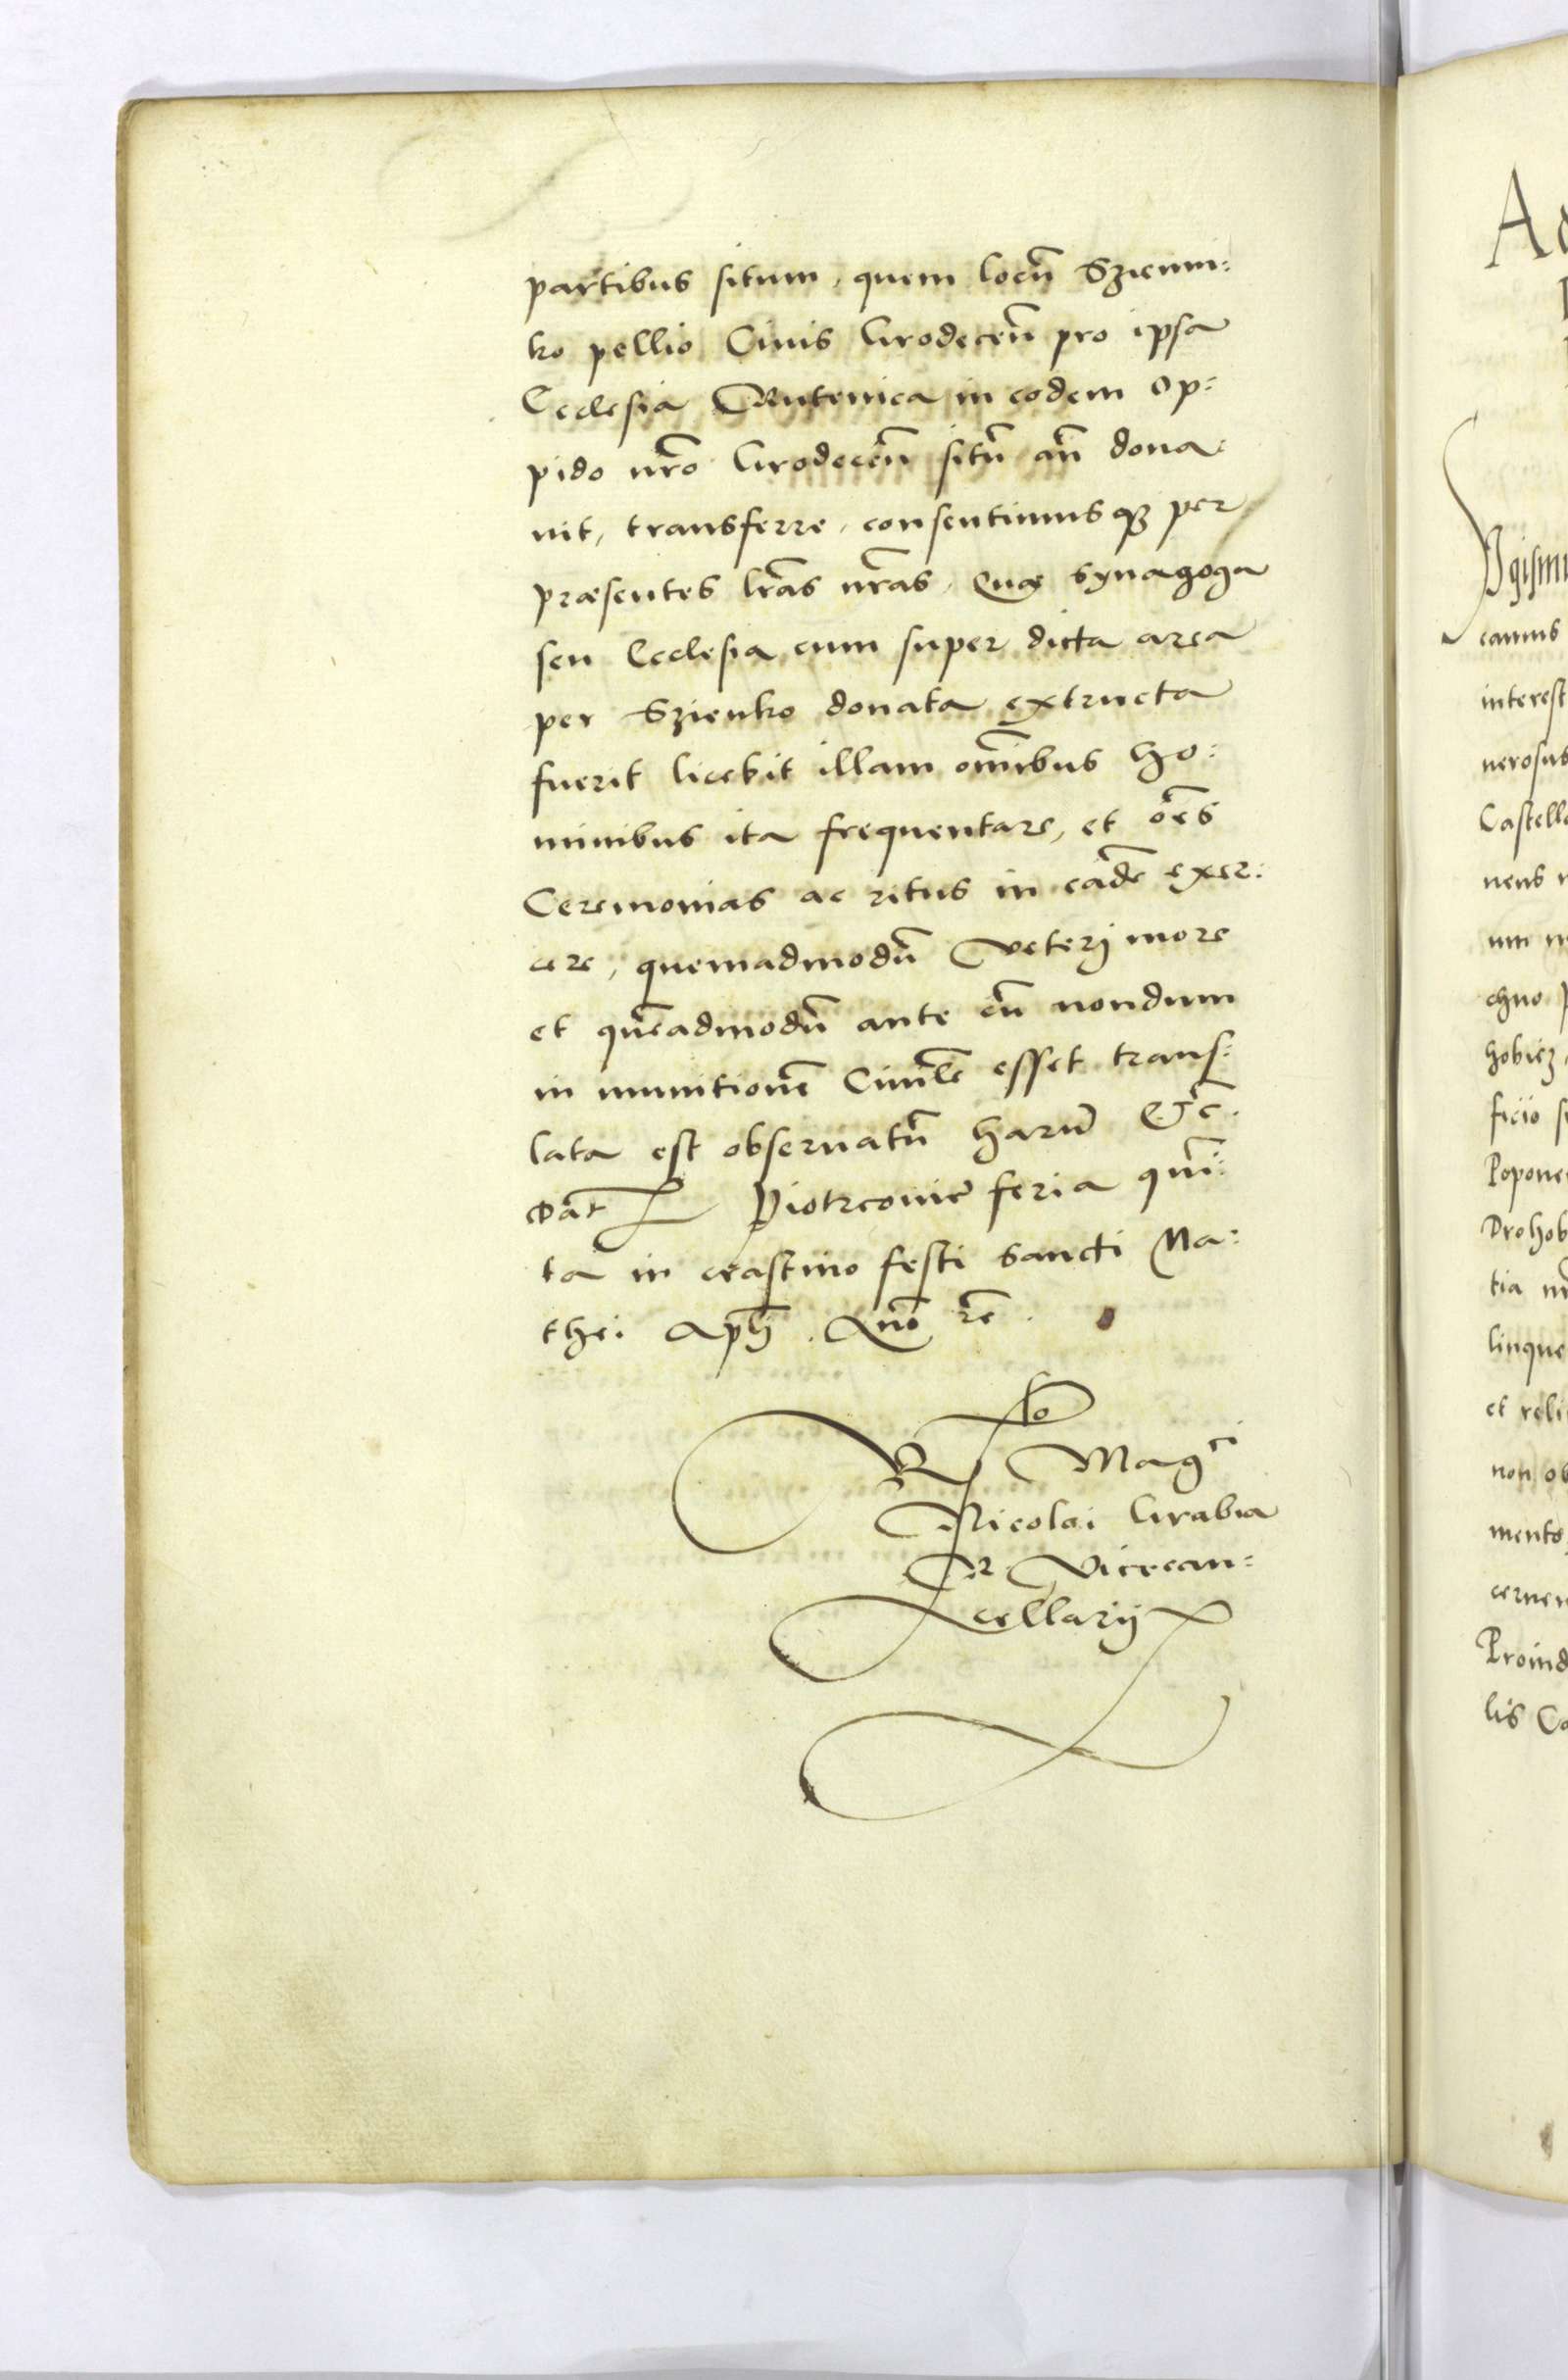 partibus situm, quem locū Szienni=
ko pellio Civis Grodecēn pro ipsa
Ecclesia Rutenica in eodem op=
pido nr̄o Grodecēn sitū an̄ dona
uit, transferre, consentimus qȝ per
præsentes lr̄as nr̄as, Quæ synagoga
seu Ecclesia cum super dicta area
per Szienko donata extructa
fuerit licebit illam om̄ibus ho=
minibus ita frequentare, et oēs
Ceremonias ac ritus in eādē exer=
cere, quemadmodū veterj more
et quēadmodū ante cū nondum
in munitionē Ciuilē esset trans=
lata est obseruatū harū &c̄.
Dat̄ Piotrcouiæ feria quī=
ta in crastino festi sancti Ma=
thei Apl̄i. Quo r̄e.
Ro
R Magci
Nicolai Grabia
R. Vicecan=
cellarij
Ad
Sgismu
camus
interest
nerosus
Castella
nens
um
chno
hobicz
ficio
Popone
Drohob
tia
linque
et reli
non ob
mento
cernen
Proind
lis Ca